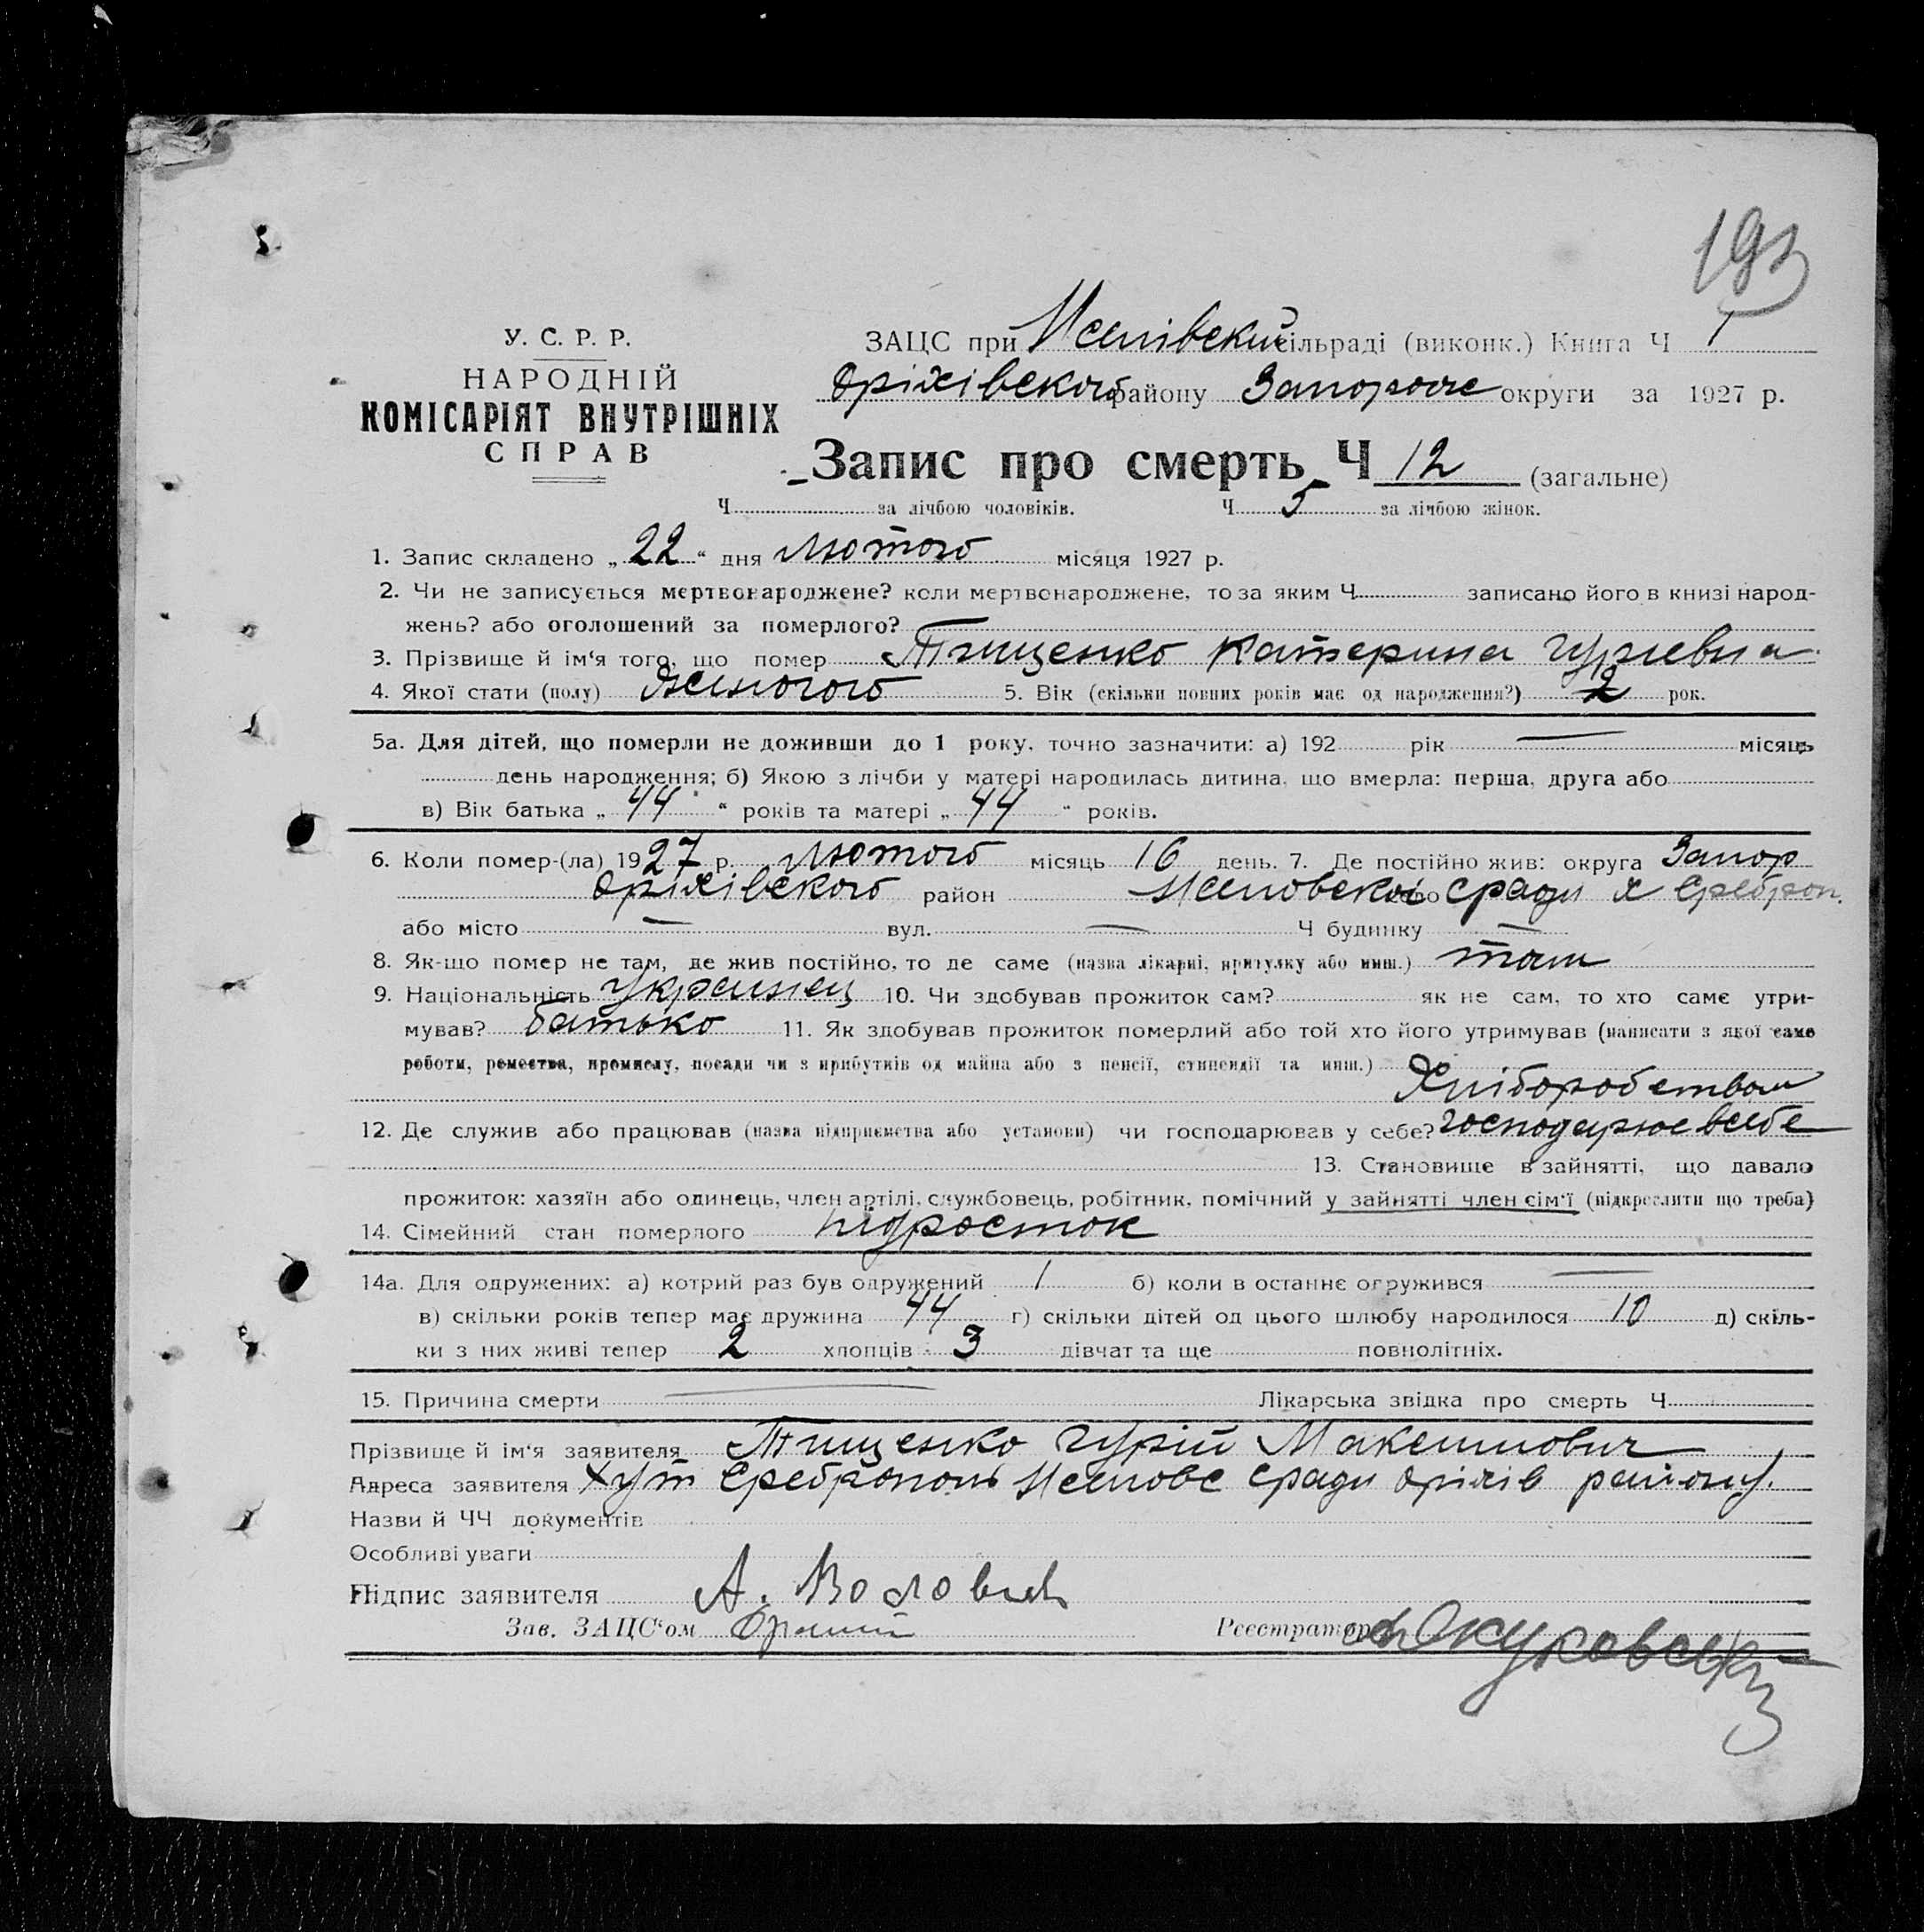 193
У. С. Р. Р.
НАРОДНІЙ
КОМІСАРІЯТ ВНУТРІШНІХ
СПРАВ
ЗАЦС при сільраді (виконк.) Книга Ч 1
Оріхівского району Запорож округи за 1927 р.
Запис про смерть Ч 12 (загальне)
Ч за лічбою чоловіків. Ч 5 за лічбою жінок.
1. Запис складено „ 22 “ дня Лютого місяця 1927 р.
2. Чи не записується мертвонароджене? коли мертвонароджене, то за яким Ч записано його в книзі народ-
жень? або оголошений за померлого?
3. Прізвище й ім‘я того, що помер Тищенко Катерина Гурієвна
4. Якої стати (полу) Жіночого 5. Вік (скільки повних років має од народження?) 2 рок.
5а. Для дітей, що померли не доживши до 1 року, точно зазначити: а) 192 рік — місяць
день народження; б) Якою з лічби у матері народилась дитина, що вмерла: перша, друга або
в) Вік батька „ 44 “ років та матері „ 44 “ років.
6. Коли помер-(ла) 1927 р. Лютого місяць 16 день. 7. Де постійно жив: округа Запор
Оріхівского район село сради х Сребропол.
або місто — вул. — Ч будинку —
8. Як-що помер не там, де жив постійно, то де саме (назва лікарні, притулку або инш.) там
9. Національність Українец 10. Чи здобував прожиток сам? як не сам, то хто саме утри-
мував? батько 11. Як здобував прожиток померлий або той хто його утримував (написати з якої саме
роботи, ремества, промислу, посади чи з прибутків од майна або з пенсії, стипендії та инш.)
Хліборобством
12. Де служив або працював (назва підприємства або установи) чи господарював у себе? господарює в себе
13. Становище в зайнятті, що давало
прожиток: хазяїн або одинець, член артілі, службовець, робітник, помічний у зайнятті член сім‘ї (підкреслити що треба)
14. Сімейний стан померлого підросток
14а. Для одружених: а) котрий раз був одружений 1 б) коли в останнє огружився —
в) скільки років тепер має дружина 44 г) скільки дітей од цього шлюбу народилося 10 д) скіль-
ки з них живі тепер 2 хлопців 3 дівчат та ще повнолітніх.
15. Причина смерти — Лікарська звідка про смерть Ч
Прізвище й ім‘я заявителя Тищенко Гурій Максимович
Адреса заявителя Хут Среброполь сради Оріхів району.
Назви й ЧЧ документів
Особливі уваги
Підпис заявителя А.
Зав. ЗАЦС‘ом Реєстратор